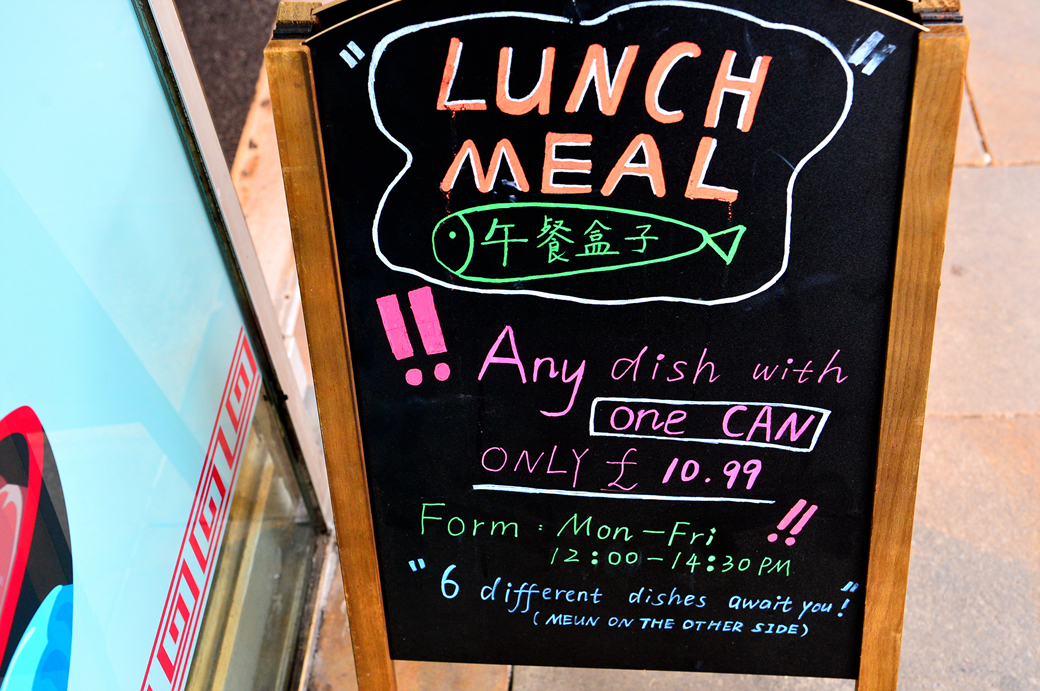 " LUNCH "
MEAL
午餐盒子
!! Any dish with
one CAN
ONLY £ 10.99
Form : Mon - Fri !!
12:00 - 14:30 PM
" 6 different dishes await you! "
( MEUN ON THE OTHER SIDE)